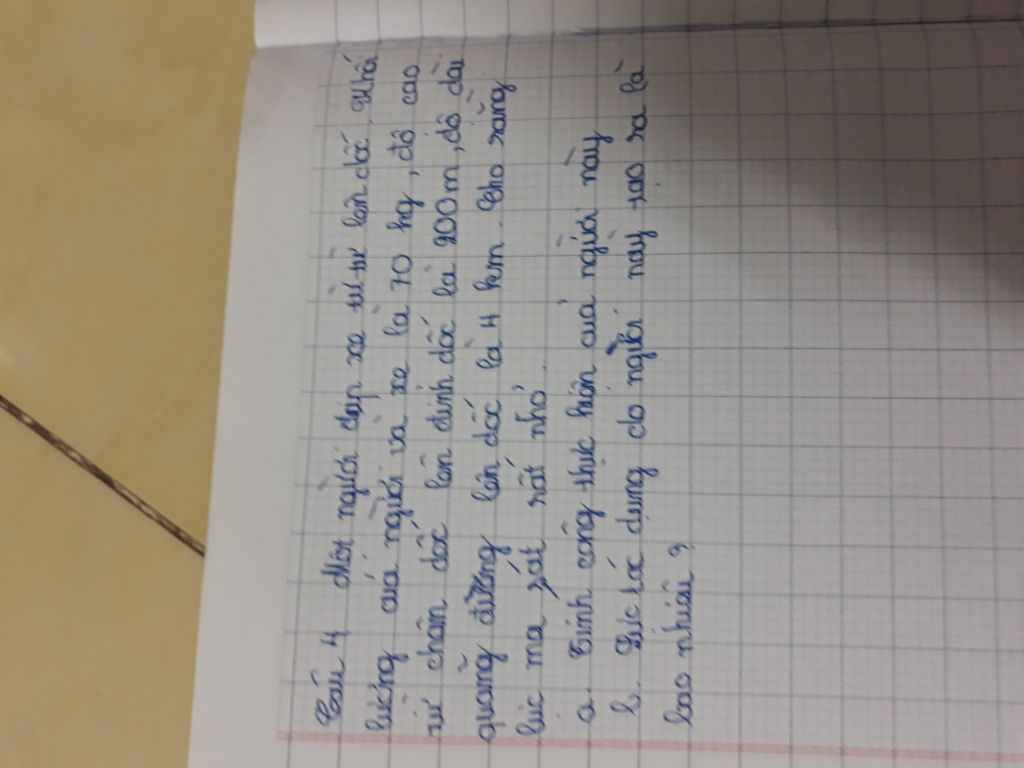 Câu 4 Một người đạp xe từ từ lên dốc. Khối
lượng của người và xe là 70 kg, độ cao
từ chân dốc lên đỉnh dốc là 200m, độ dài
quãng đường lên dốc là 4 km. Cho rằng
lực ma sát rất nhỏ.
a. Tính công thực hiện của người này
b. Lực tác dụng do người này tạo ra là
bao nhiêu?